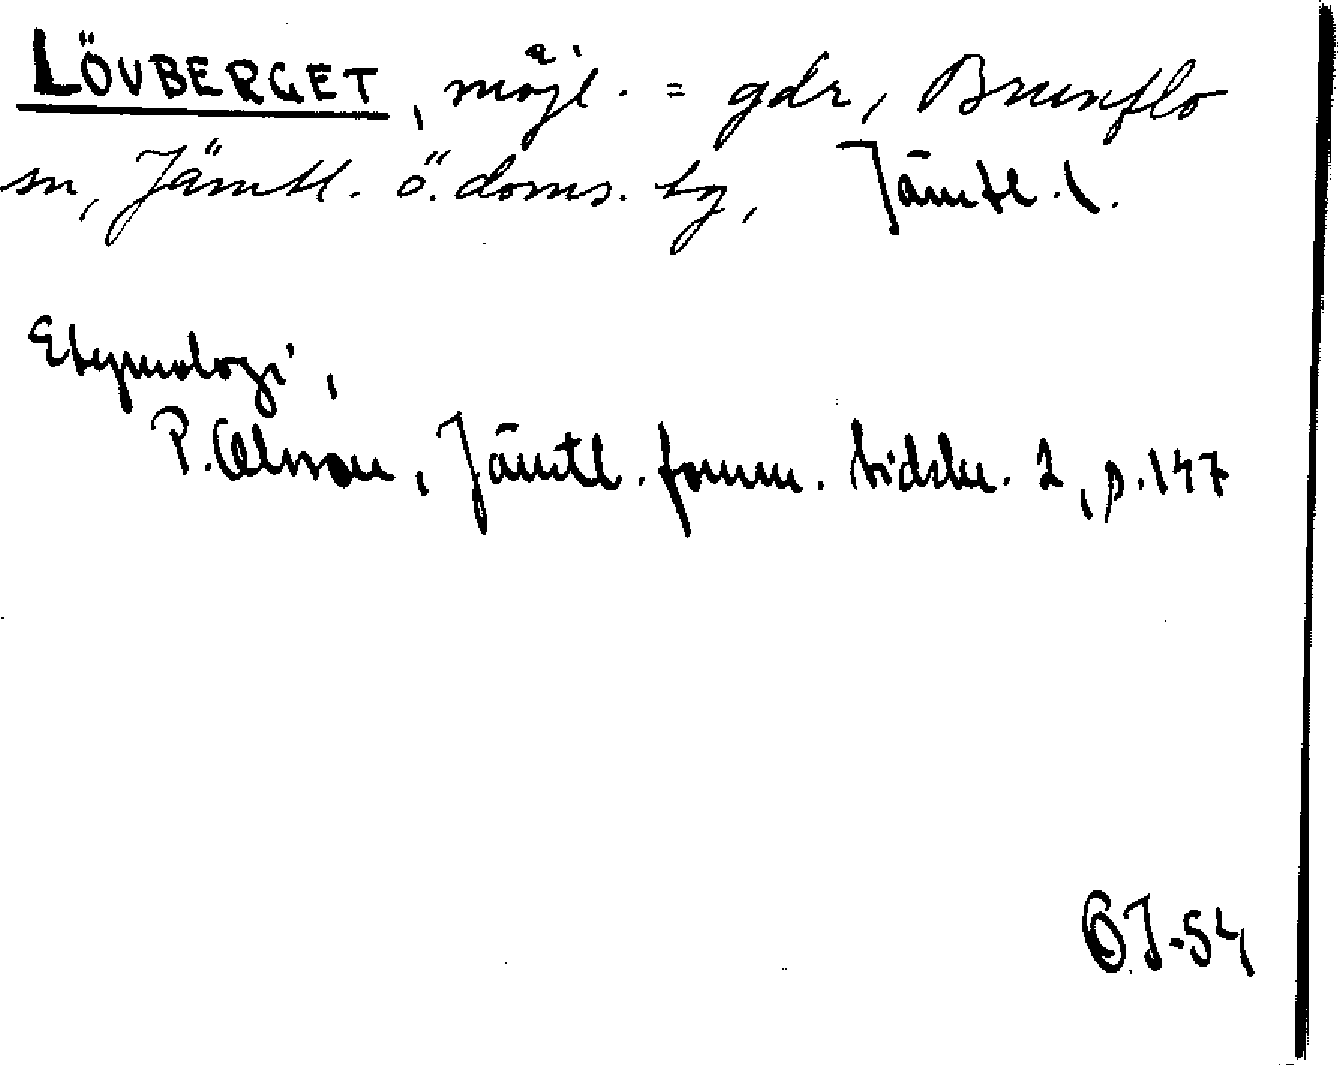 LÖVBERGET, möjl. = gdr, Brunflo
sn, Jämtl. ö. doms. tg, Jämtl. l.
Etymologi,
P. Olsson, Jämtl. fornm. tidskr. 2, p. 147
ÖJ-54